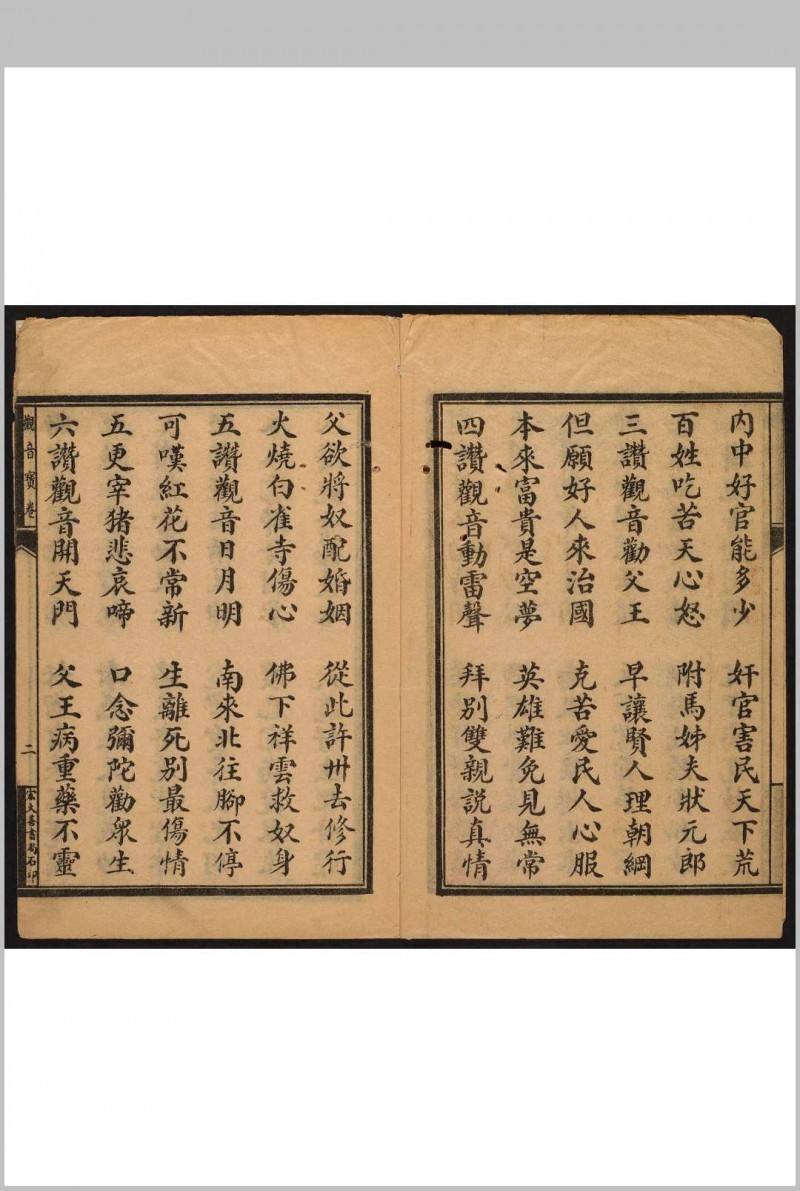 內中好官能多少　奸官害民天下荒
百姓吃苦天心怒　附馬姊夫狀元郎
三讚觀音勸父王　早讓賢人理朝綱
但願好人來治國　克苦愛民人心服
本來富貴是空夢　英雄難免見無常
四讚觀音動雷聲　拜別雙親説真情
父欲將奴配婚姻　從此許卅去修行
火燒白雀寺傷心　佛下祥雲救奴身
五讚觀音日月明　南來北往腳不停
可嘆紅花不常新　生離死別最傷情
五更宰猪悲哀啼　口念彌陀勸眾生
六讚觀音開天門　父王病重藥不靈
觀音寶卷
二
大善書局石印